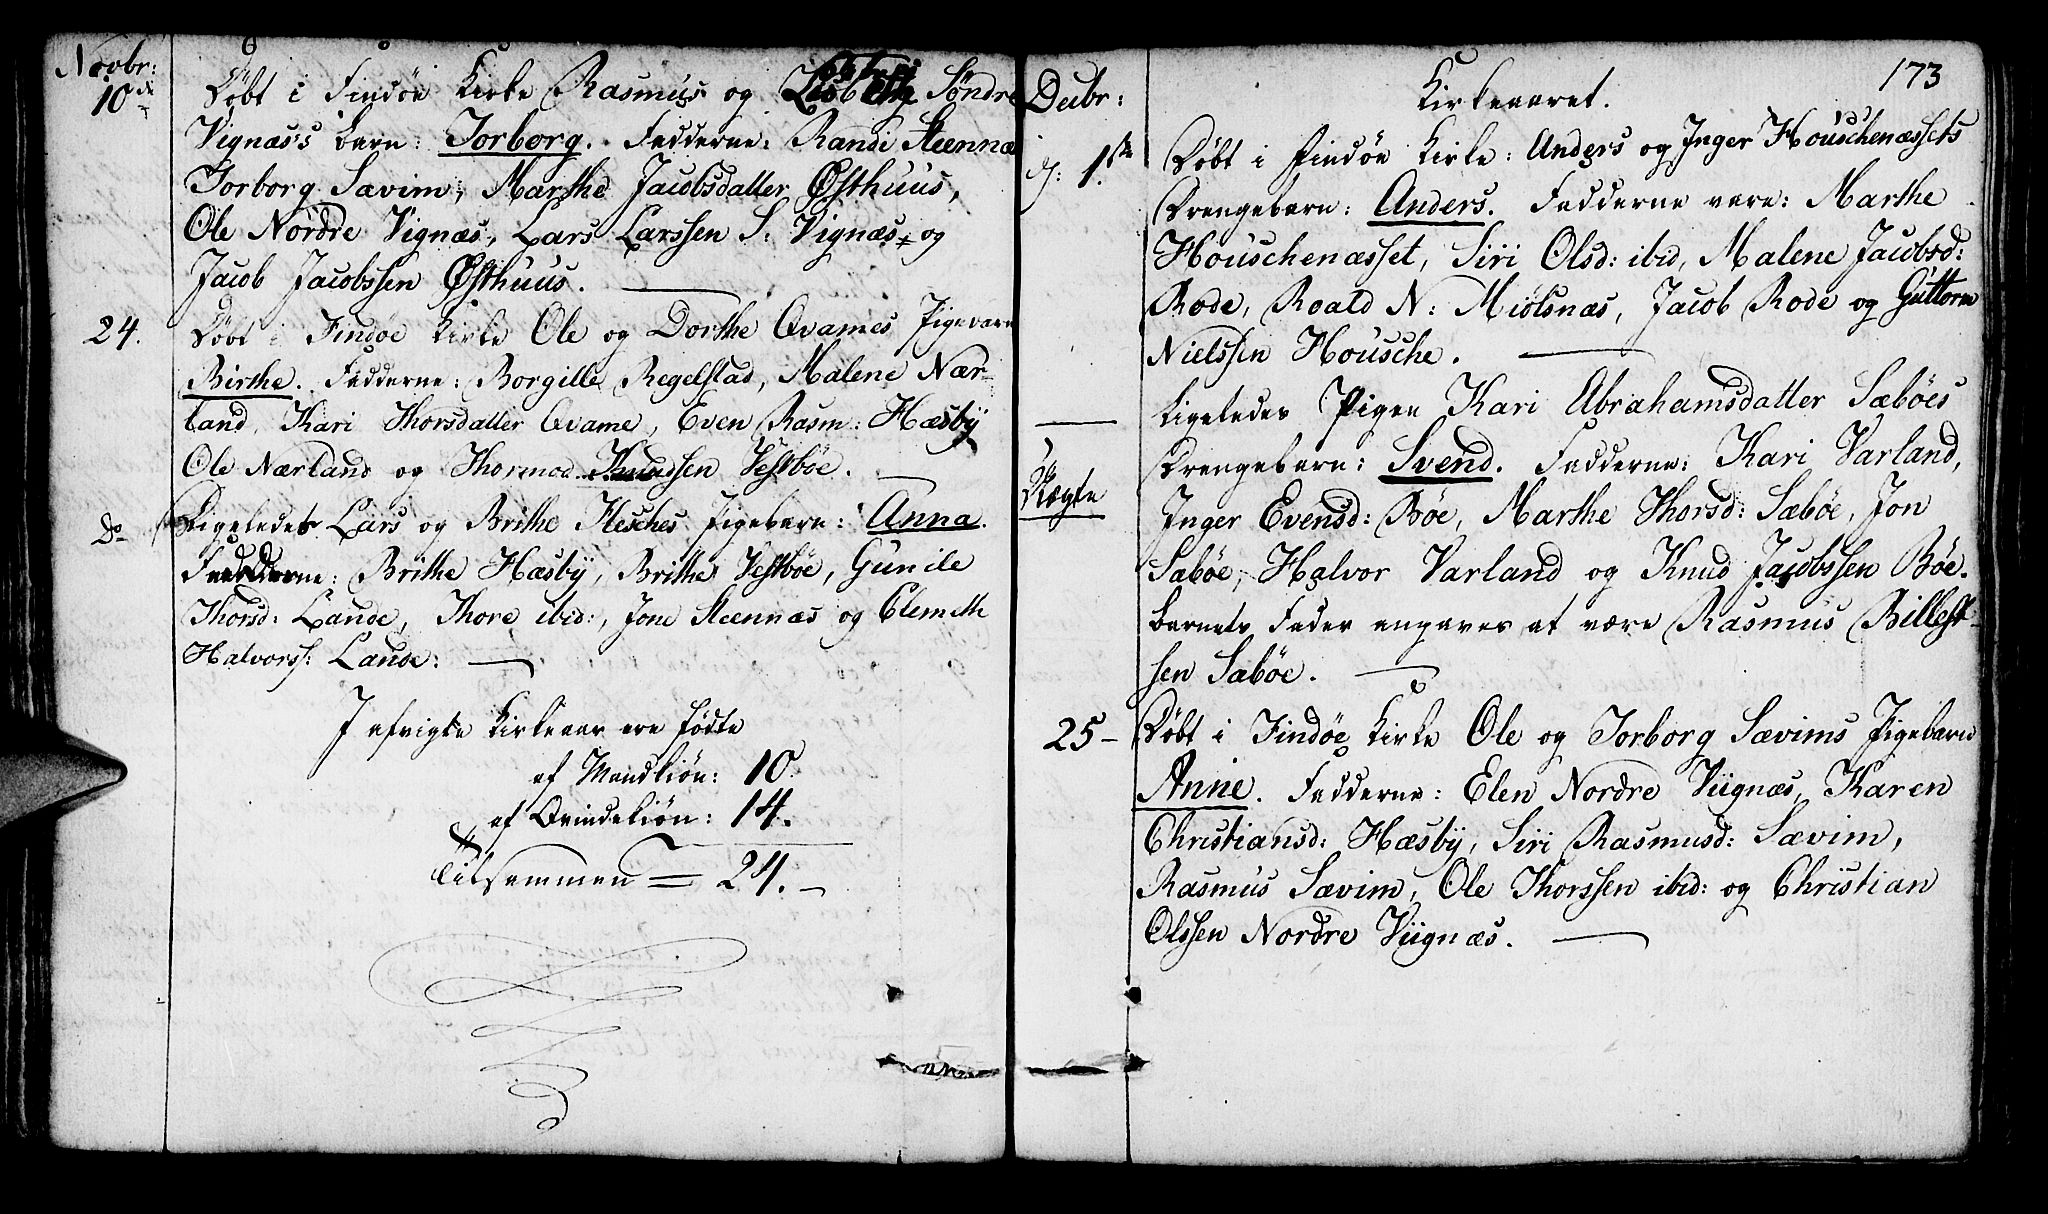 Novbr:
10de
Døbt i Findøe Kirke Rasmus og Lisbeth Søndre
Vignæs's barn: Torborg. Fadderne: Randi Steennæs
Torborg Sævim, Marthe Jacobsdatter Østhuus,
Ole Nordre Vignæs, Lars Larssen S: Vignæs og
Jacob Jacobssen Østhuus.
24. Døbt i Findøe Kirke Ole og Dorthe Qvames Pigebarn
Birthe. Fadderne: Borgille Regelstad, Malene Nær-
land, Kari Thorsdatter Qvame, Even Rasm: Hæsby
Ole Nærland og Thormod Knudssen Vestbøe.
Do Ligeledes Lars og Brithe Flesches Pigebarn: Anna.
Fadderne: Brithe Hæsby, Brithe Vestbøe, Gunile
Thorsd: Lande, Thore ibid:, Jone Steennæs og Clemeth
Halvorss: Lande:
I afvigte Kirkeaar ere fødte
af Mandkiøn: 10.
af Qvindekiøn: 14.
tilsammen = 24.
173
Decbr:
Kirkeaaret.
d: 1ste Døbt i Findøe Kirke: Anders og Inger Houschenæssets
Drengebarn: Anders. Fadderne vare: Marthe
Houschenæsset, Siri Olsd: ibid, Malene Jacobsd:
Rode, Roald N: Miølsnæs, Jacob Rode og Guttorm
Nielssen Housche.
Ligeledes Pigen Kari Abrahamsdatter Sæbøes
Uægte
Drengebarn: Svend. Fadderne: Kari Varland,
Inger Evensd: Bøe, Marthe Thorsd: Sæbøe, Jon
Sæbøe, Halvor Varland og Knud Jacobssen Bøe.
Barnets Fader angaves at være Rasmus Billest-
sen Sæbøe.
25 Døbt i Findøe Kirke Ole og Torborg Sævims Pigebarn
Anne. Fadderne: Elen Nordre Viignæs, Karen
Christiansd: Hæsby, Siri Rasmusd: Sævim,
Rasmus Sævim, Ole Thorssen ibid: og Christian
Olssen Nordre Viignæs.